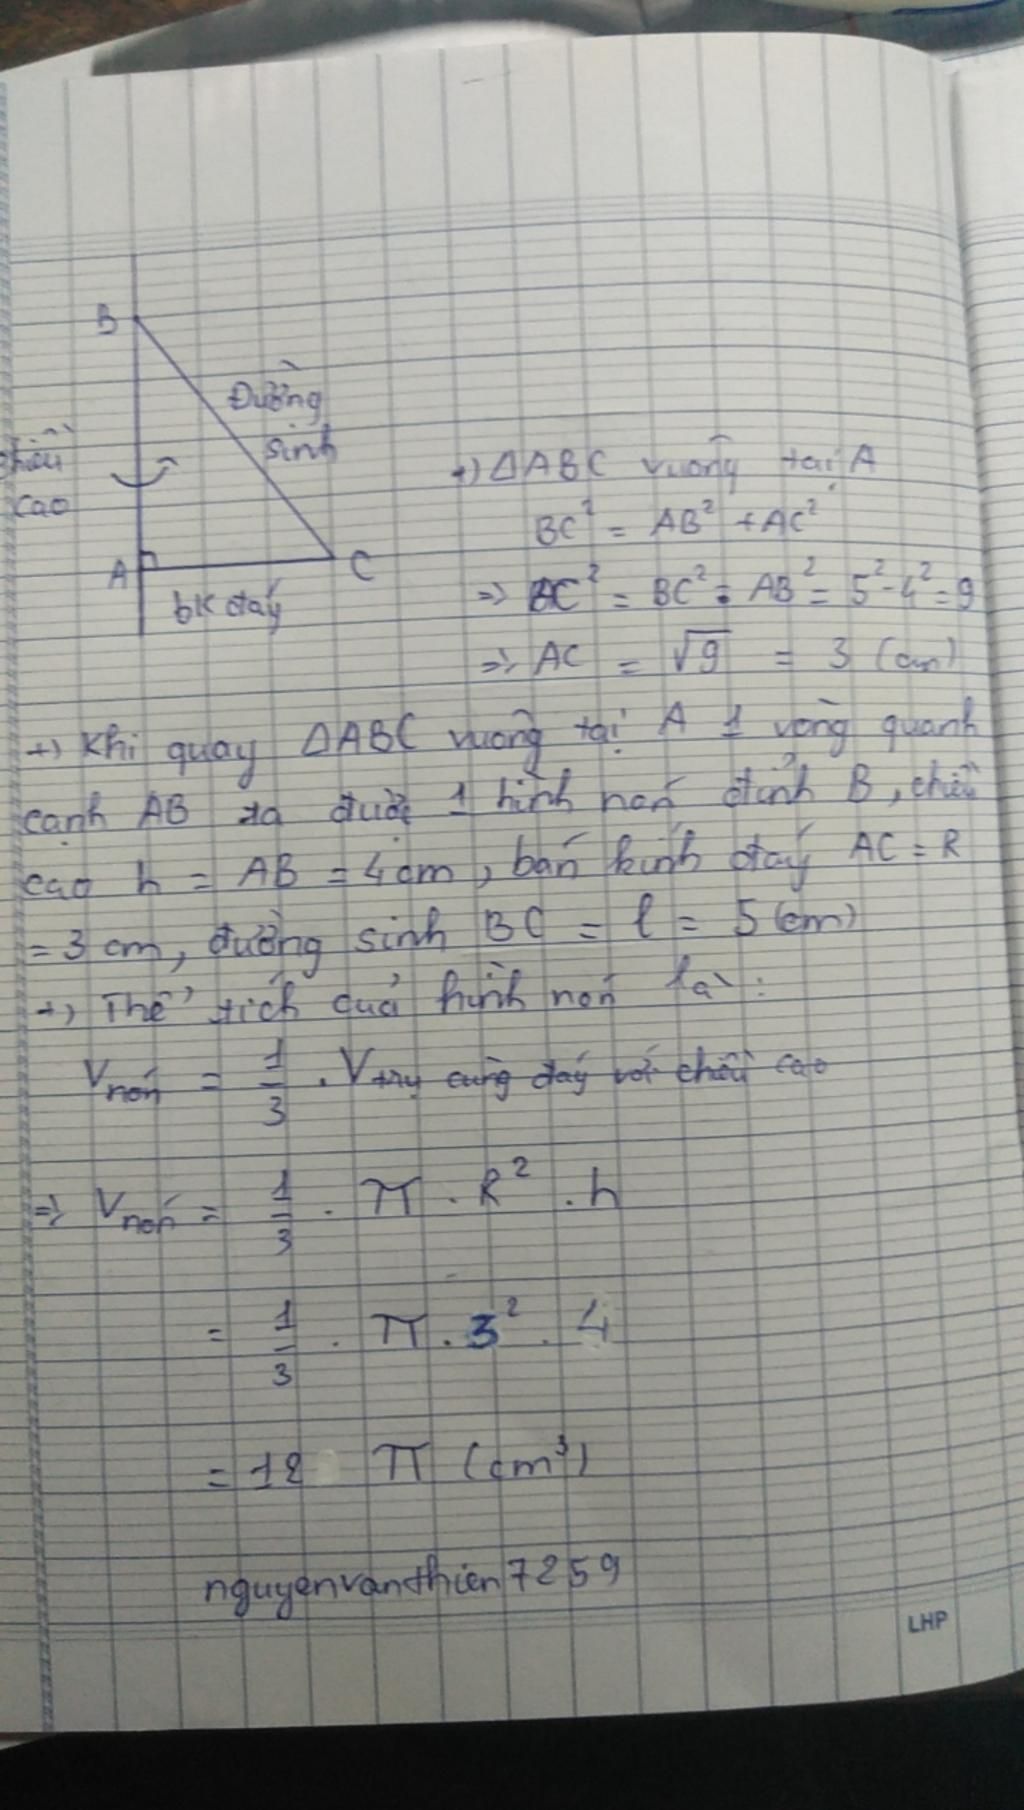 B
Đường
sinh
chiều
cao
A
C
bk đáy
+) ΔABC vuông tại A
BC² = AB² + AC²
=> BC² = BC² - AB² = 5² - 4² = 9
=> AC = √9 = 3 (cm)
+) Khi quay ΔABC vuông tại A 1 vòng quanh
cạnh AB ta được 1 hình nón đỉnh B, chiều
cao h = AB = 4cm, bán kính đáy AC = R
= 3 cm, đường sinh BC = l = 5 (cm)
+) Thể tích của hình nón là:
Vnón = 1/3 . Vtrụ cùng đáy với chiều cao
=> Vnón = 1/3 . π . R² . h
= 1/3 . π . 3² . 4
= 12 π (cm³)
nguyenvanthien7259
LHP